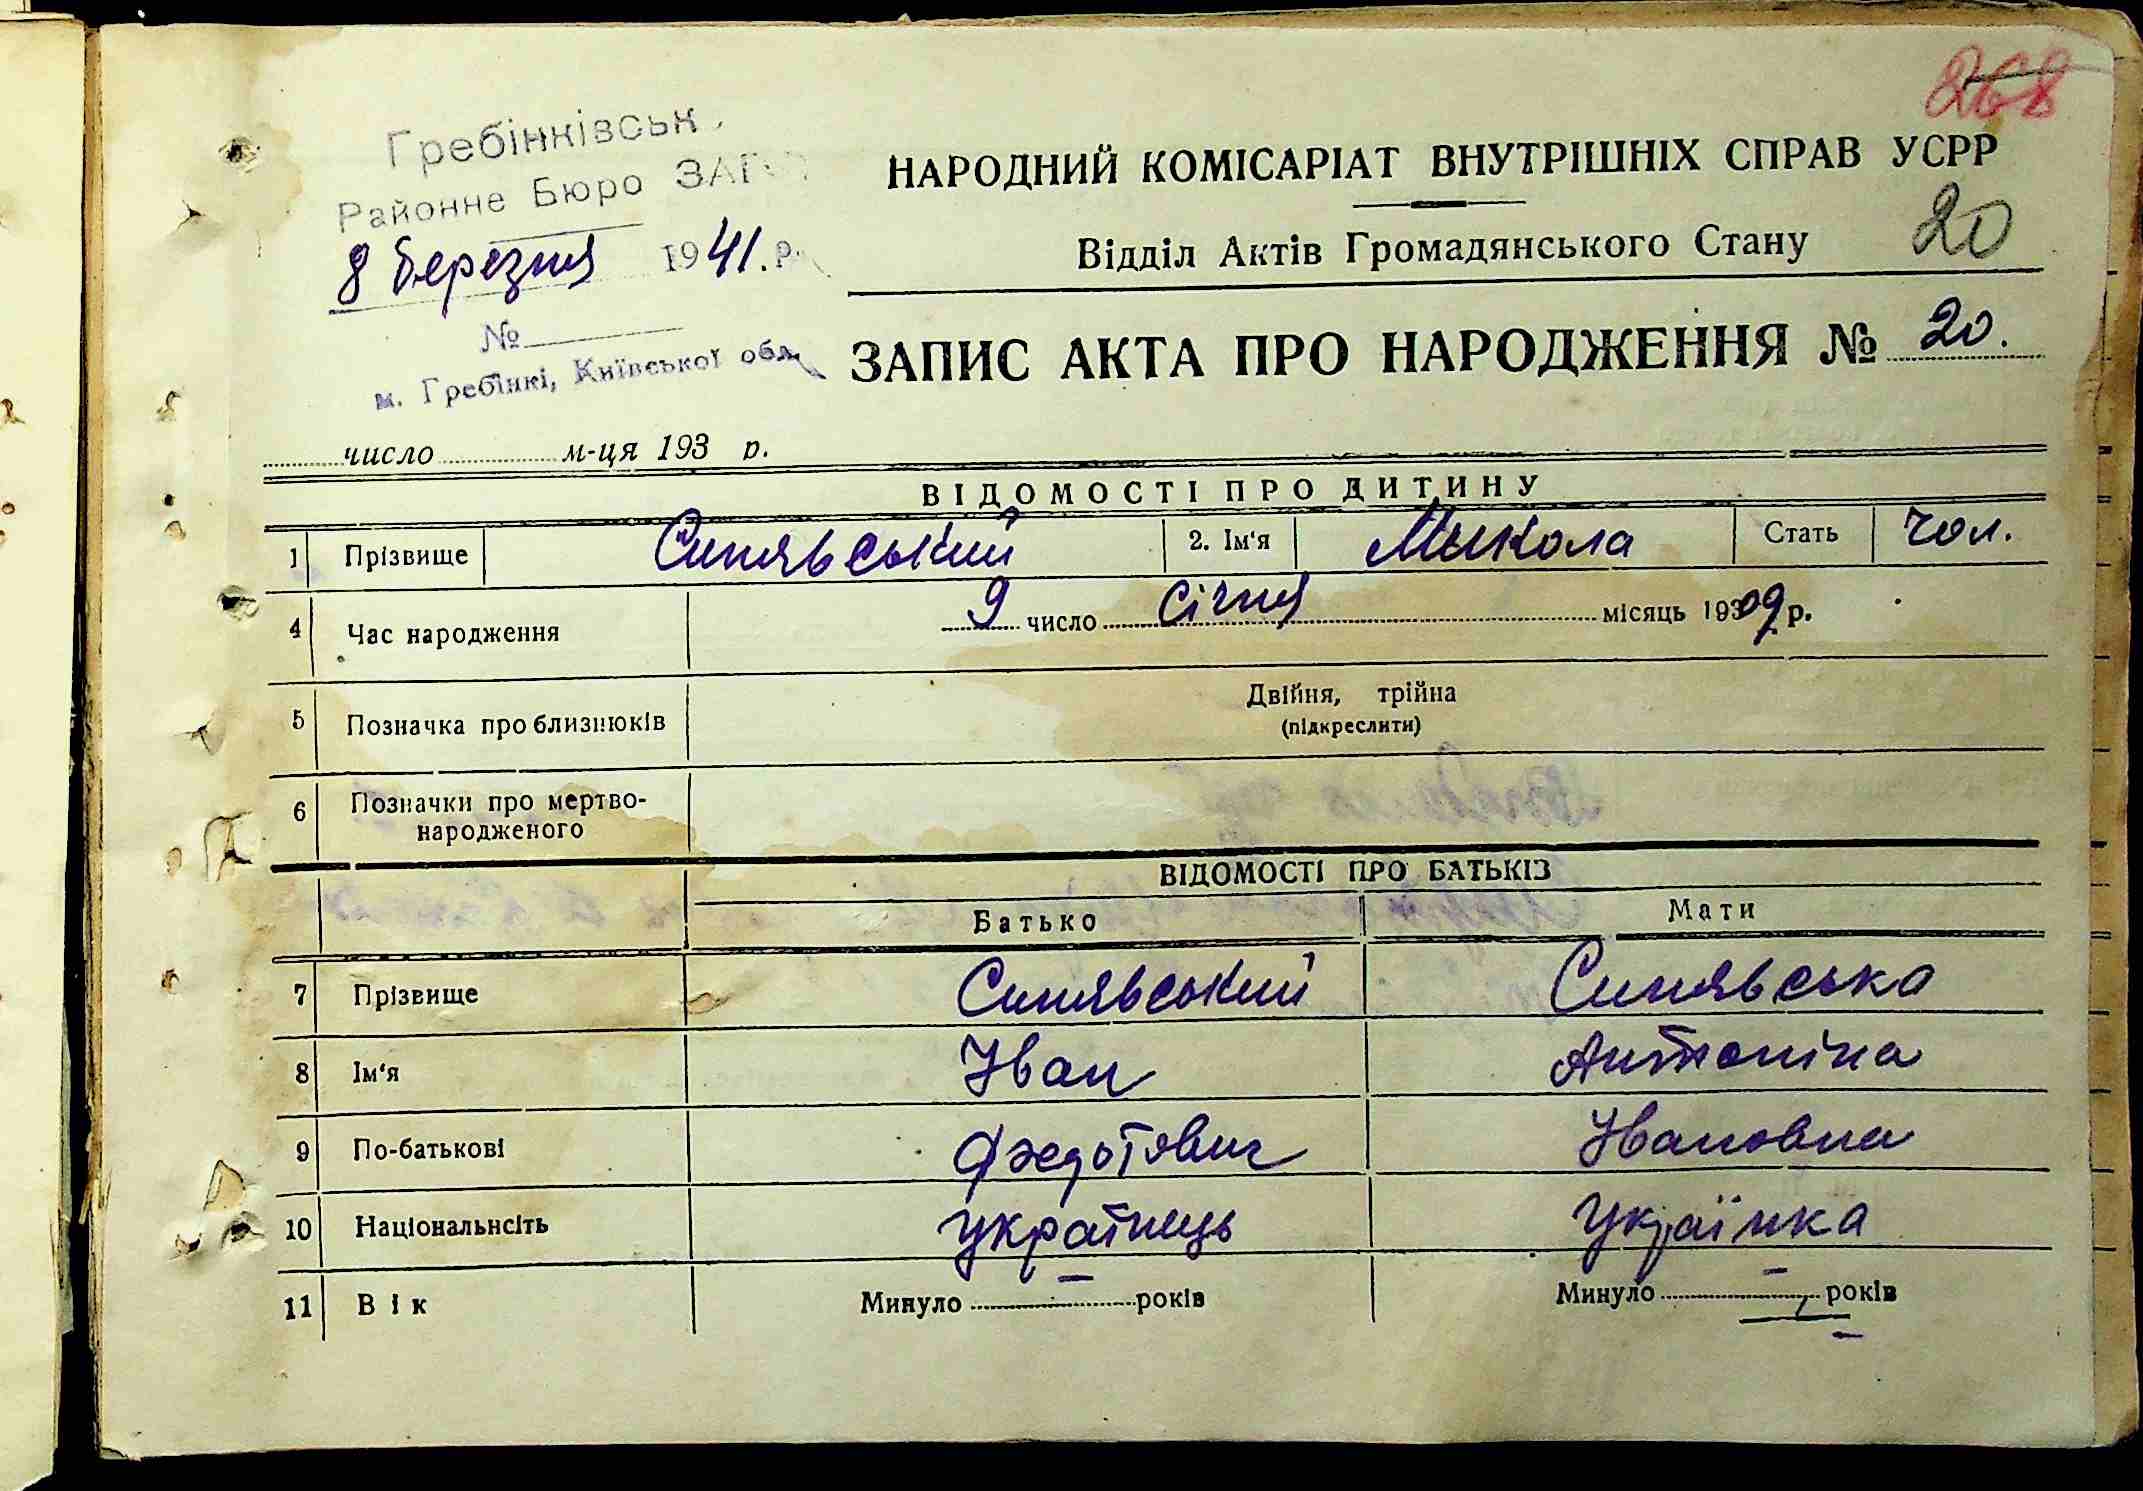 268
Гребінківськ
Районне Бюро ЗАГС
8 березня 1941. р.
№
м. Гребінкі, Київської обл.
НАРОДНИЙ КОМІСАРІАТ ВНУТРІШНІХ СПРАВ УСРР
Відділ Актів Громадянського Стану 20
ЗАПИС АКТА ПРО НАРОДЖЕННЯ № 20.
число м-ця 193 р.
ВІДОМОСТІ ПРО ДИТИНУ
1 Прізвище Синявський 2. Ім'я Микола Стать чол.
4 Час народження 9 число січня місяць 1909 р.
5 Позначка про близнюків Двійня, трійна
(підкреслити)
6 Позначки про мертво-
народженого
ВІДОМОСТІ ПРО БАТЬКІВ
Батько Мати
7 Прізвище Синявський Синявська
8 Ім'я Іван Антоніна
9 По-батькові Федотович Івановна
10 Національнсіть українець українка
11 Вік Минуло — років Минуло — років